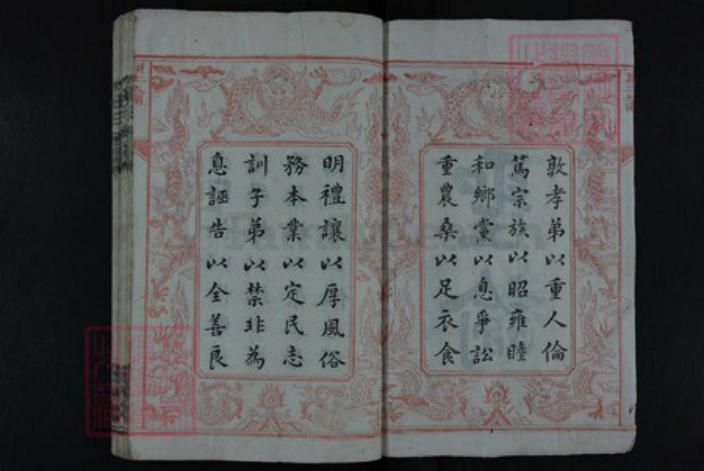 敦孝弟以重人倫
篤宗族以昭雍睦
和鄉黨以息爭訟
重農桑以足衣食
明禮讓以厚風俗
務本業以定民志
訓子弟以禁非為
息誣告以全善良